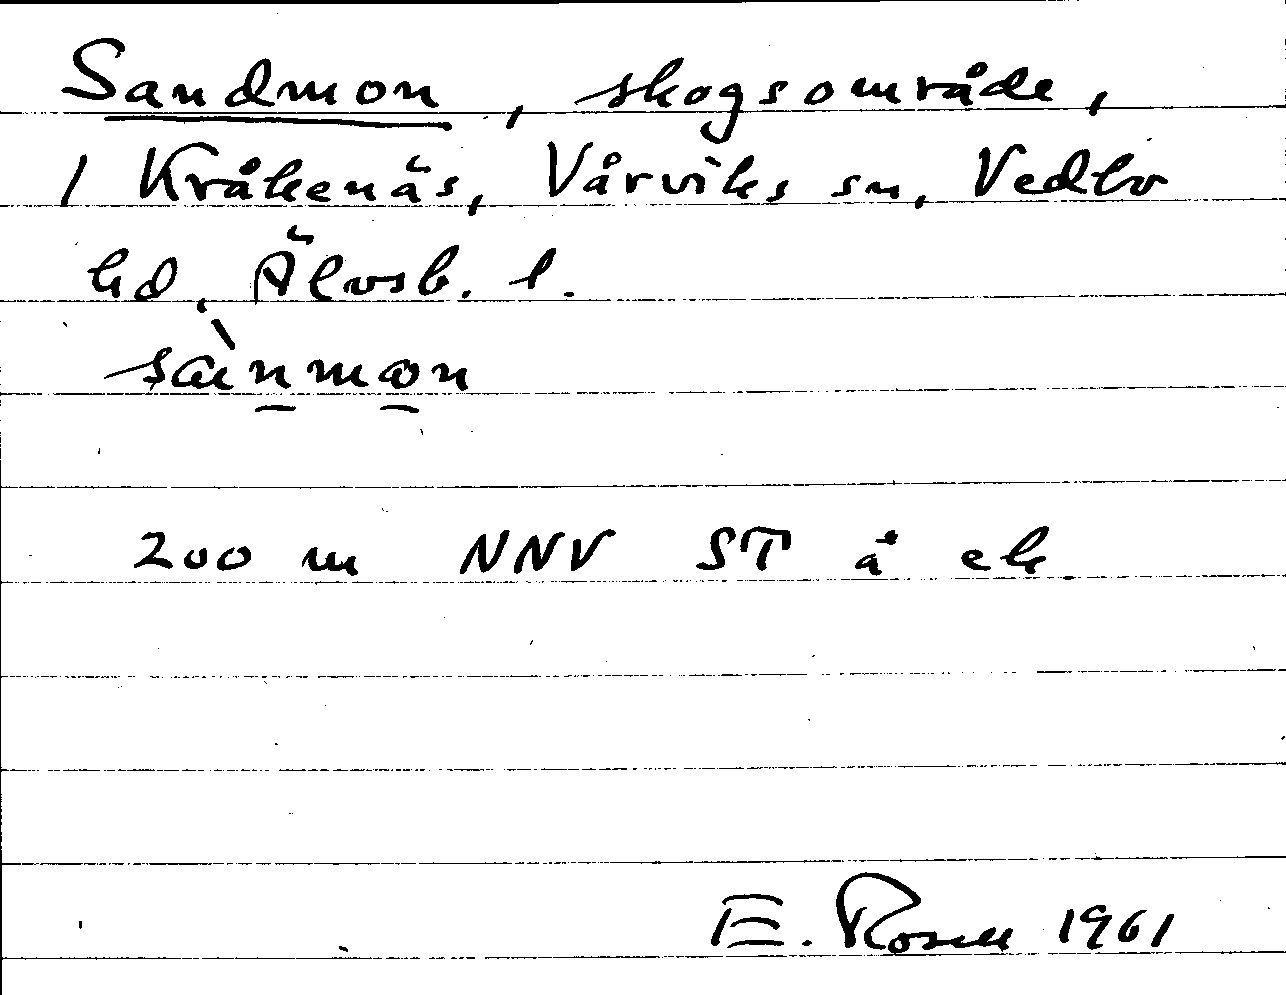 Sandmon, skogsområde,
1 Kråkenäs, Vårviks sn, Vedbo
hd, Älvsb. l.
sànmon
200 m NNV ST å ek
E. Rosell 1961